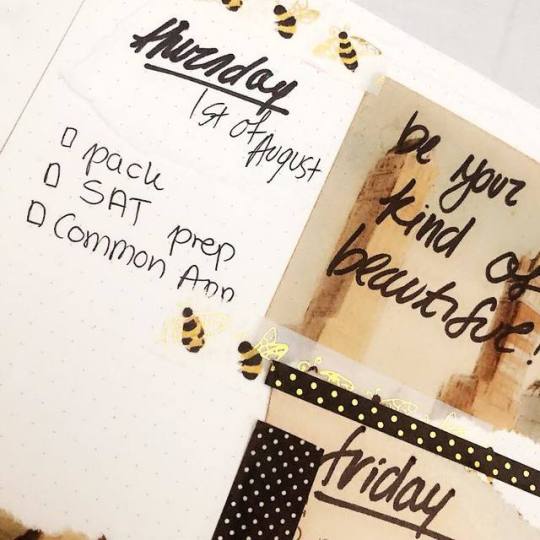 thursday
1st of
August
pack
SAT prep
Common App
be your
kind of
beautiful!
friday